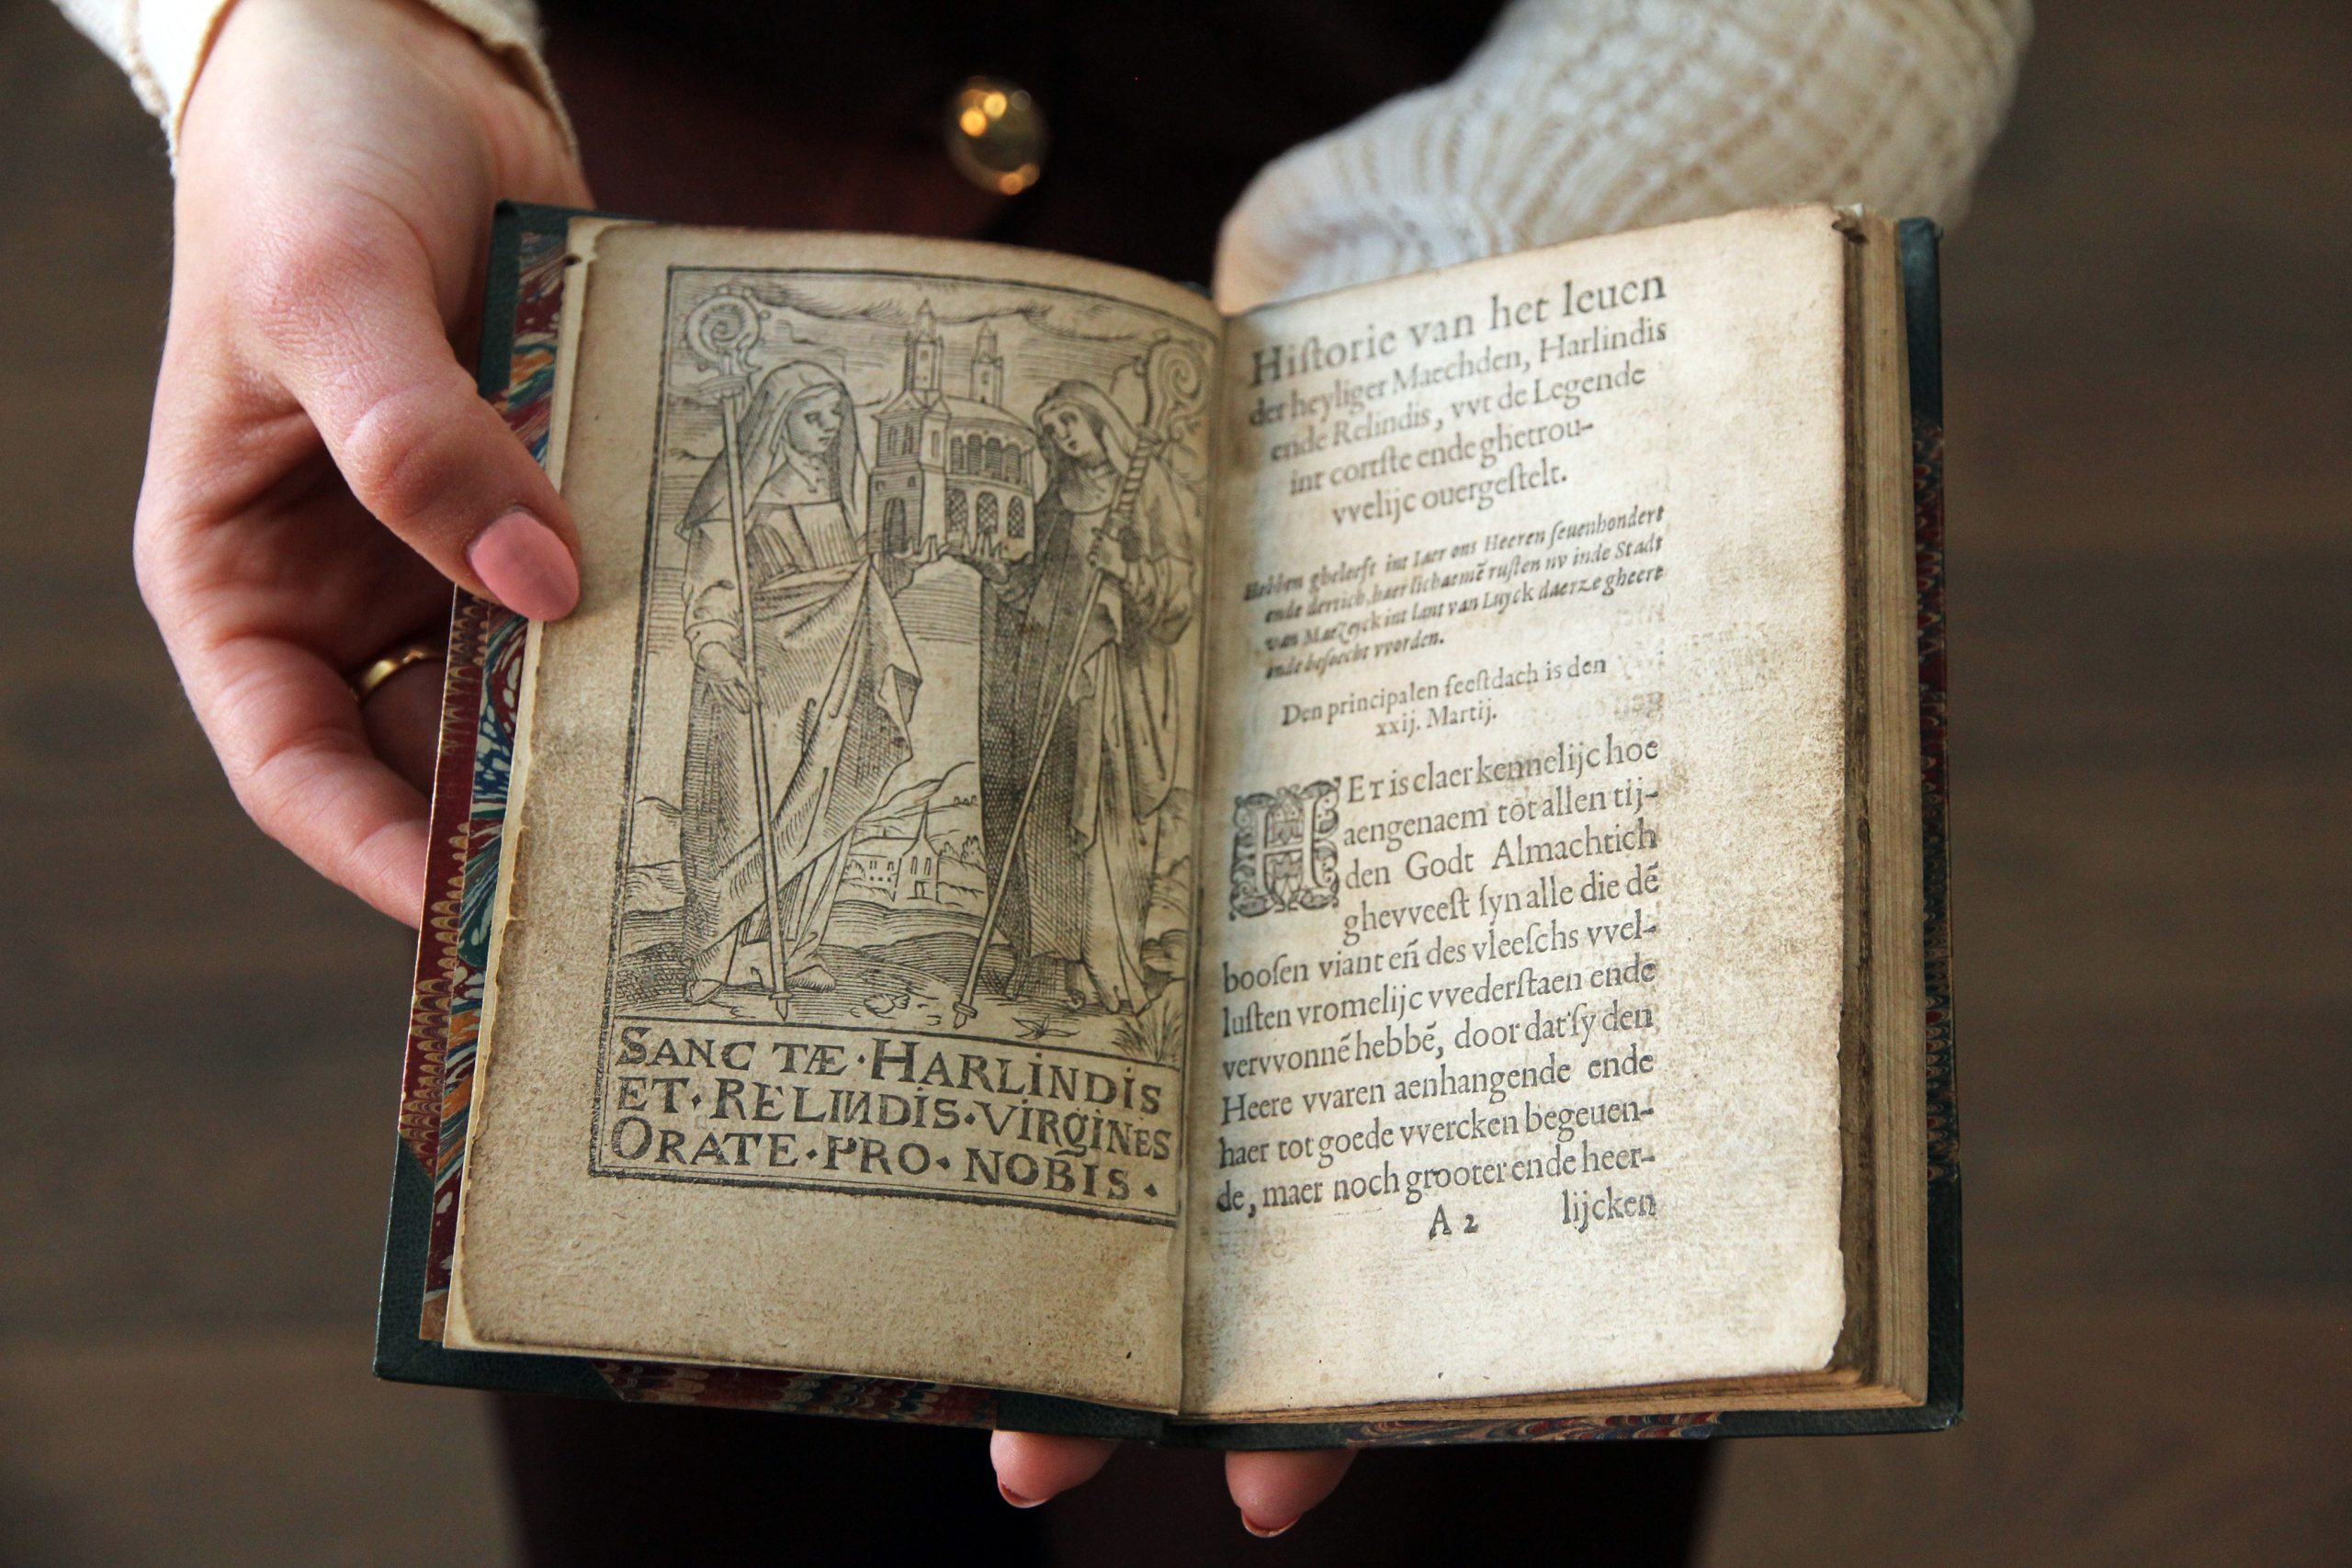 SANCTÆ·HARLINDIS
ET·RELINDIS·VIRGINES
ORATE·PRO·NOBIS·
Hiſtorie van het leuen
der heyliger Maechden, Harlindis
ende Relindis, vvt de Legende
int cortſte ende ghetrou-
vvelijc ouergeſtelt.
Hebben gheleeft int Iaer ons Heeren ſeuenhondert
ende dertich, haer lichaemē ruſten nv inde Stadt
van Maezeyck int Lant van Luyck daer ze gheert
ende beſoecht vvorden.
Den principalen feeſtdach is den
xxij. Martij.
HEt is claer kennelijc hoe
aengenaem tot allen tij-
den Godt Almachtich
ghevveeſt ſyn alle die dē
booſen viant en̄ des vleeſchs vvel-
luſten vromelijc vvederſtaen ende
vervvonnē hebbē, door dat ſy den
Heere vvaren aenhangende ende
haer tot goede vvercken begeuen-
de, maer noch grooter ende heer-
A 2 lijcken